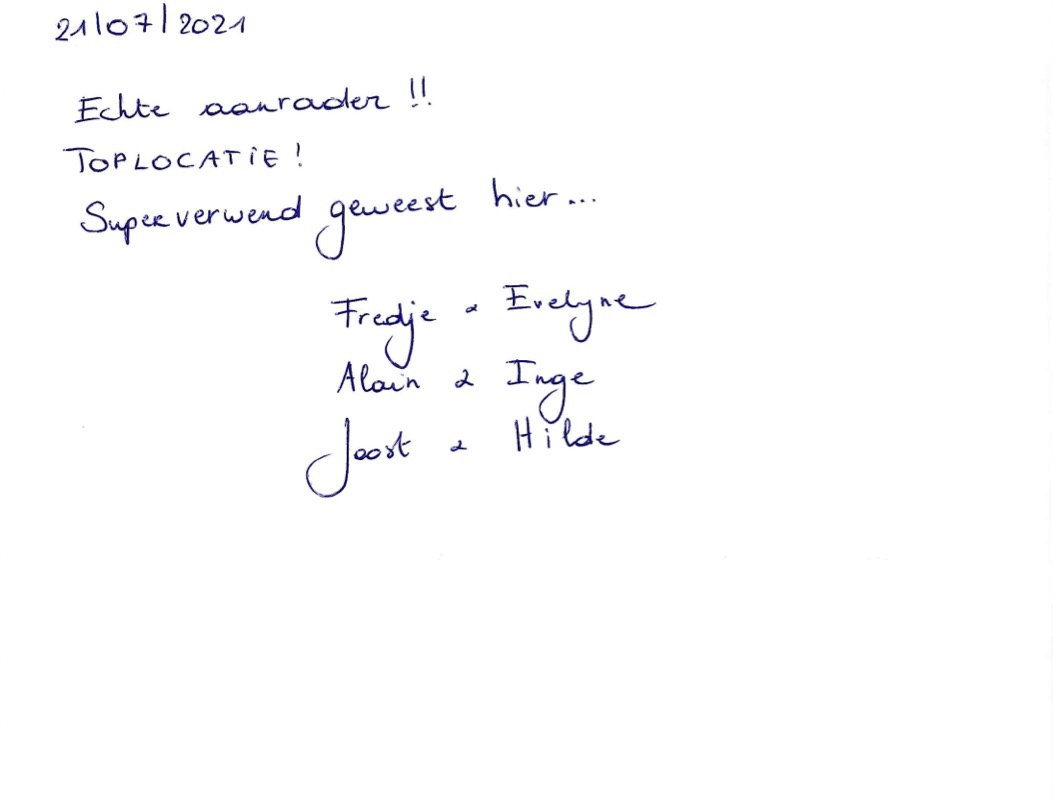 21/07/2021
Echte aanrader !!
TOPLOCATIE !
Superverwend geweest hier...
Fredje & Evelyne
Alain & Inge
Joost & Hilde